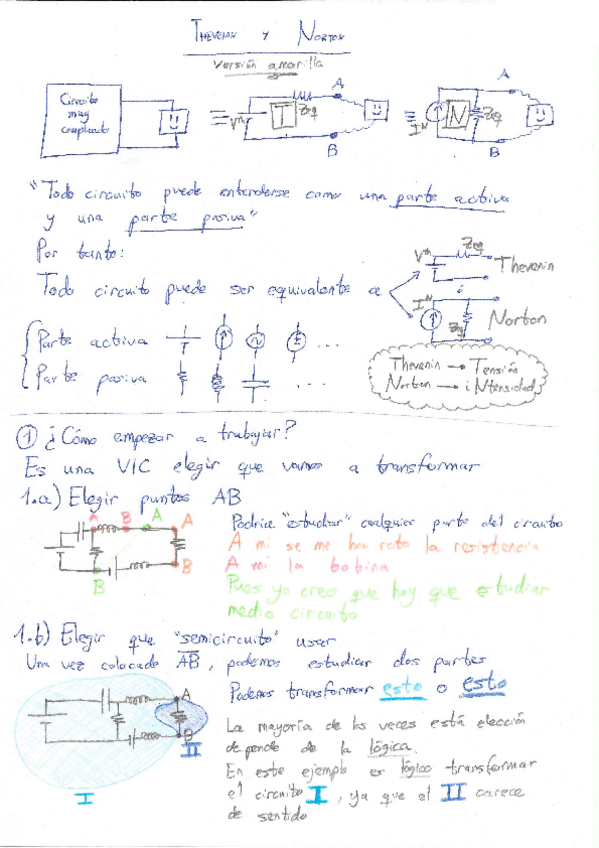 THEVENIN Y NORTON
Versión amarilla
Circuito muy complicado
Vth
T
Zeq
A
B
IN
N
Zeq
A
B
"Todo circuito puede entenderse como una parte activa
y una parte pasiva"
Por tanto:
Todo circuito puede ser equivalente a
Vth Zeq Thevenin
IN Zeq Norton
Parte activa ...
Parte pasiva ...
Thevenin → Tensión
Norton → iNtensidad
① ¿Cómo empezar a trabajar?
Es una VIC elegir que vamos a transformar
1.a) Elegir puntos AB
A B A A
B B
Podrías "estudiar" cualquier parte del circuito
A mi se me ha roto la resistencia
A mi la bobina
Pues yo creo que hay que estudiar
medio circuito
1.b) Elegir que "semicircuito" usar
Una vez colocado AB, podemos estudiar dos partes
Podemos transformar esto o esto
A
B
I
II
La mayoría de las veces está elección
depende de la lógica.
En este ejemplo es lógico transformar
el circuito I, ya que el II carece
de sentido